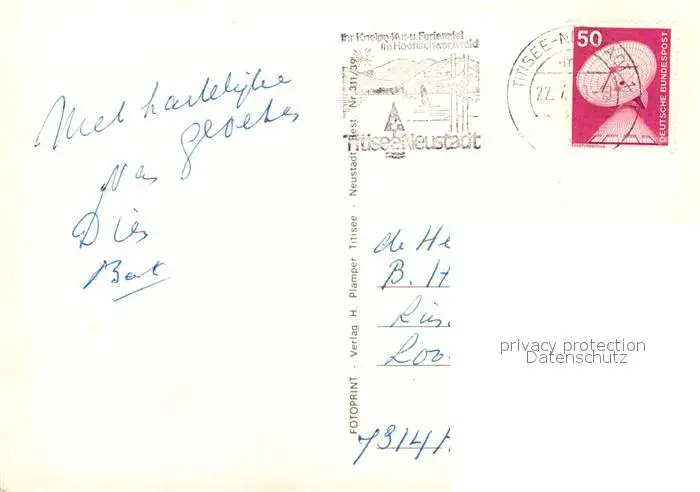 Met hartelijke
groeten
van
Dies
Bert
Ihr Kneipp-Kur-u.Ferienziel
im Hochschwarzwald
Titisee-Neustadt
TITISEE-N
22.
50
DEUTSCHE BUNDESPOST
FOTOPRINT - Verlag H. Plamper Titisee - Neustadt Best. Nr. 311/39
de He
B. H
Loo
7314
privacy protection
Datenschutz